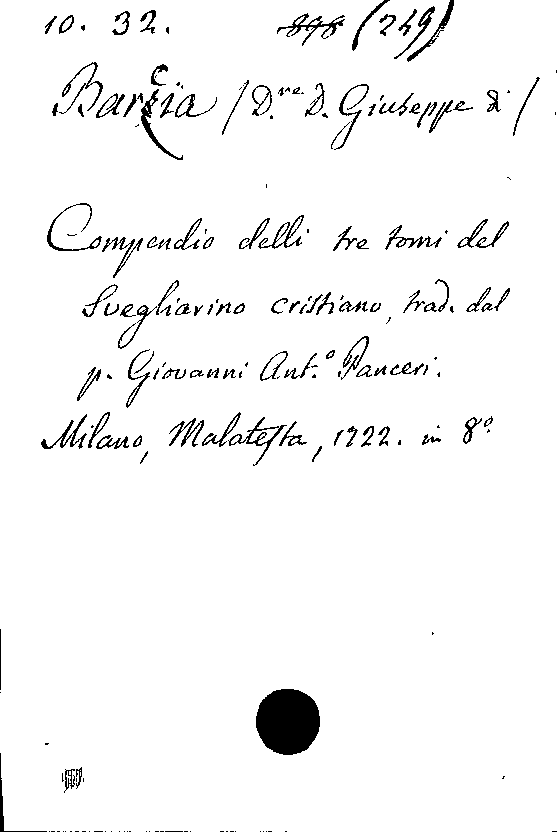 10. 32. 898 (249)
Barcia / D.re D. Giuseppe di /
Compendio delli tre tomi del
Svegliarino cristiano, trad. dal
p. Giovanni Ant.o Panceri.
Milano, Malatesta, 1722. in 8o